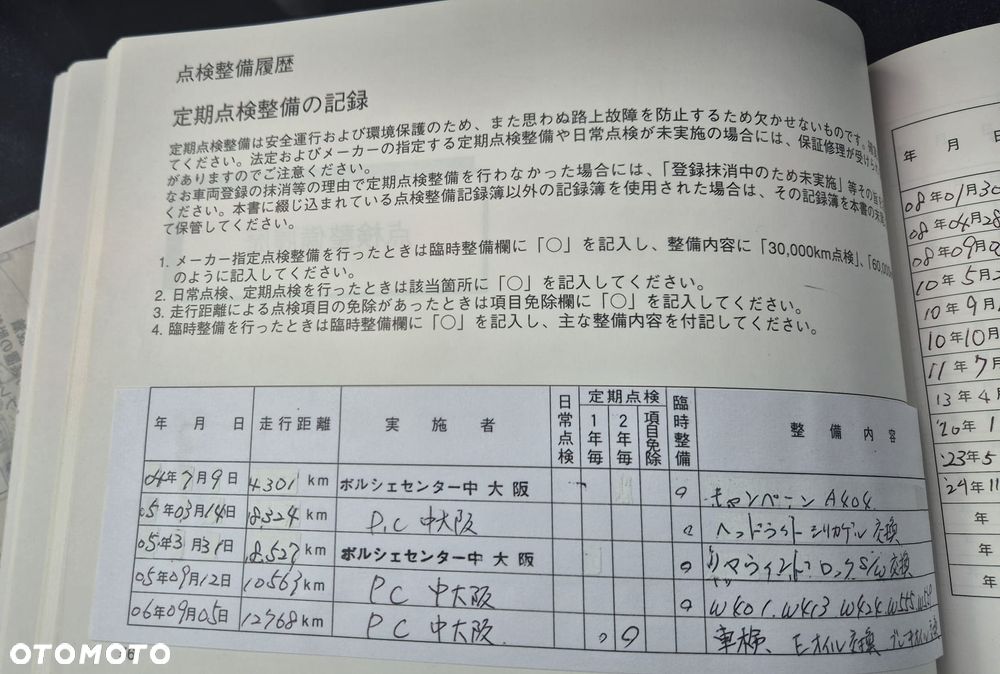 点検整備履歴
定期点検整備の記録
定期点検整備は安全運行および環境保護のため、また思わぬ路上故障を防止するため欠かせないものです。
てください。法定およびメーカーの指定する定期点検整備や日常点検が未実施の場合には、保証修理が受けられ
がありますのでご注意ください。
なお車両登録の抹消等の理由で定期点検整備を行わなかった場合には、「登録抹消中のため未実施」等その旨を
ください。本書に綴じ込まれている点検整備記録簿以外の記録簿を使用された場合は、その記録簿を本書の末尾
て保管してください。
1. メーカー指定点検整備を行ったときは臨時整備欄に「○」を記入し、整備内容に「30,000km点検」、「60,000
のように記入してください。
2. 日常点検、定期点検を行ったときは該当箇所に「○」を記入してください。
3. 走行距離による点検項目の免除があったときは項目免除欄に「○」を記入してください。
4. 臨時整備を行ったときは臨時整備欄に「○」を記入し、主な整備内容を付記してください。
年 月 日 走行距離 実施者 日常点検 定期点検 1年毎 2年毎 項目免除 臨時整備 整備内容
04年7月9日 4301 km ポルシェセンター中大阪 ○ キャンペーン A404
05年03月14日 8324 km P.C 中大阪 ○ ヘッドライト シリカゲル 交換
05年3月31日 8527 km ポルシェセンター中大阪 ○ ロックS/W交換
05年09月12日 10563 km PC 中大阪 ○ W401. W413 W424. W555.
06年09月05日 12768 km PC 中大阪 ○ 車検、Eオイル交換
年 月
08年01月30
08年04月28
08年09月
10年5月
10年9月
10年10月
11年7月
13年4月
'20年1
'23年5
'24年11
年
年
年
6
OTOMOTO